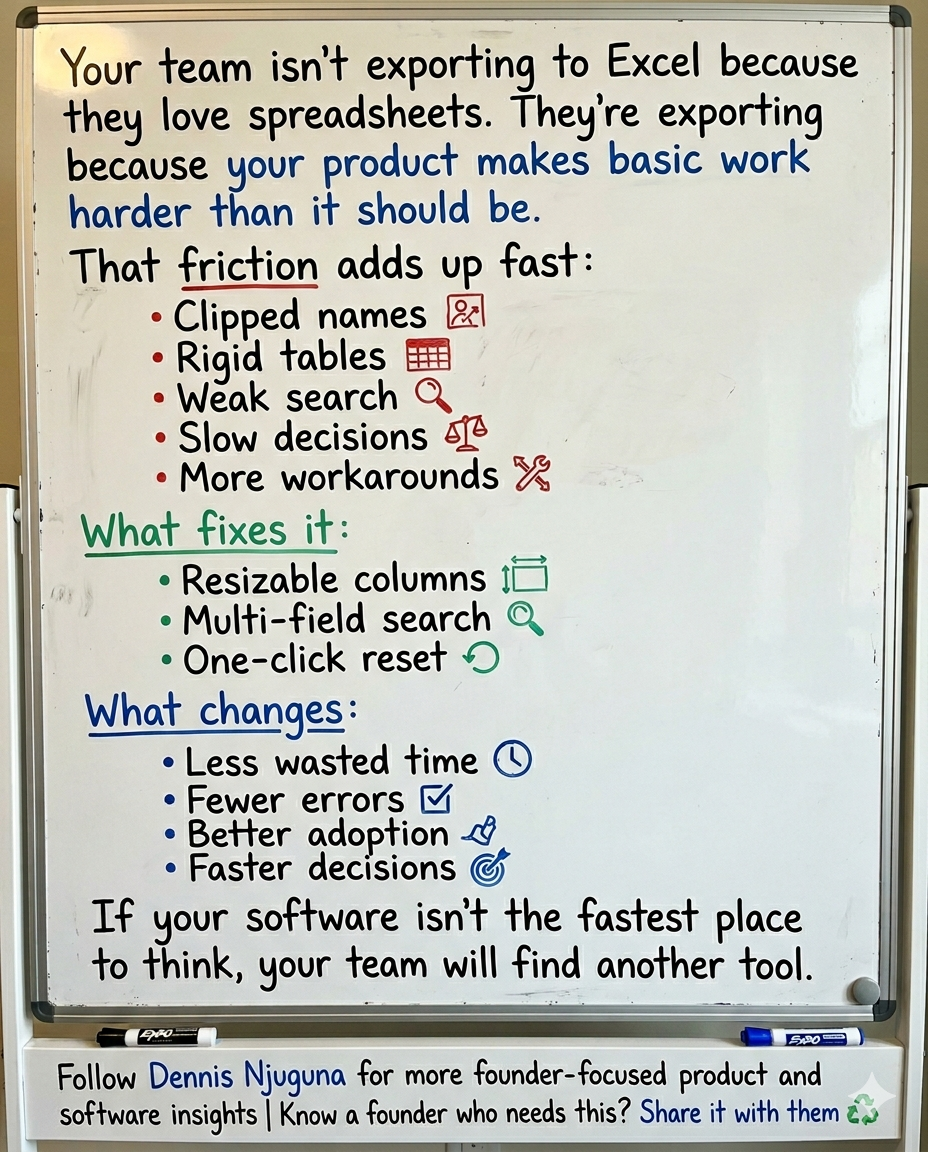 Your team isn't exporting to Excel because
they love spreadsheets. They're exporting
because your product makes basic work
harder than it should be.
That friction adds up fast:
• Clipped names
• Rigid tables
• Weak search
• Slow decisions
• More workarounds
What fixes it:
• Resizable columns
• Multi-field search
• One-click reset
What changes:
• Less wasted time
• Fewer errors
• Better adoption
• Faster decisions
If your software isn't the fastest place
to think, your team will find another tool.
EXPO
EXPO
Follow Dennis Njuguna for more founder-focused product and
software insights | Know a founder who needs this? Share it with them